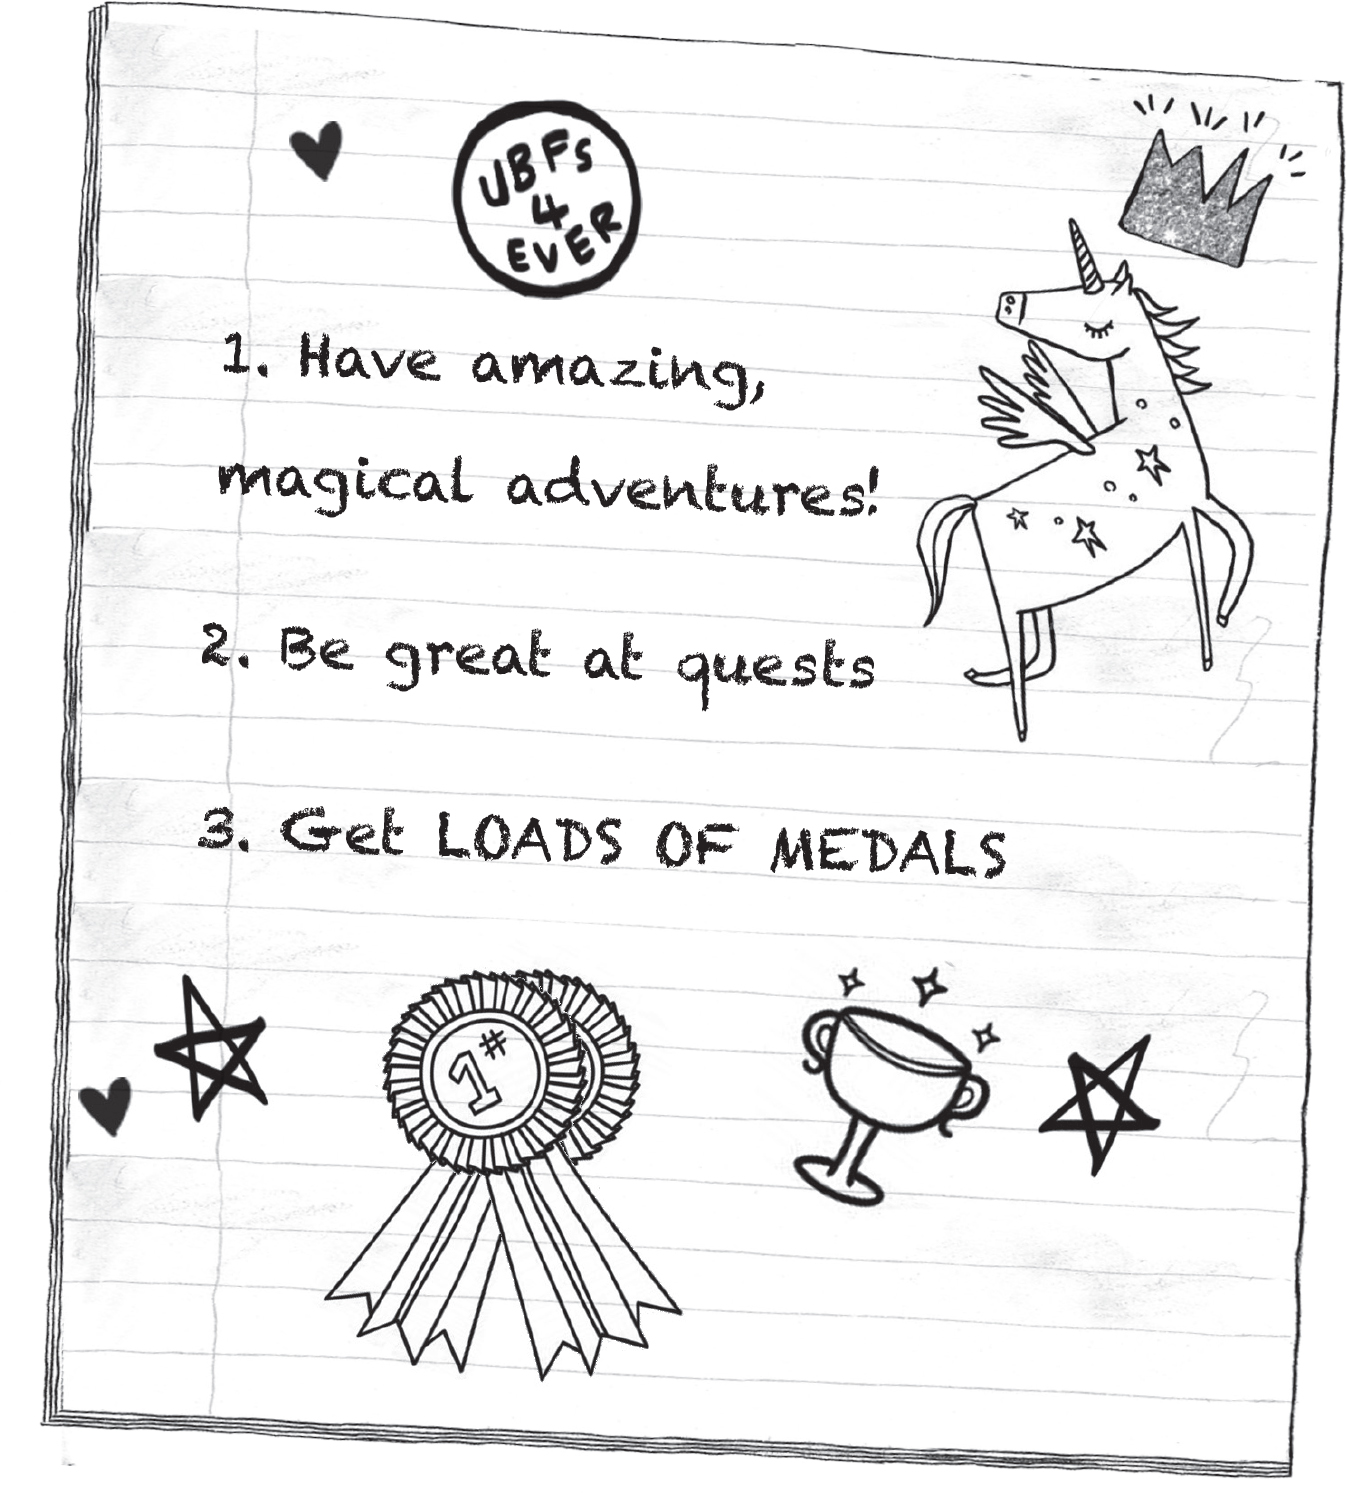 UBFs
4
EVER
1. Have amazing,
magical adventures!
2. Be great at quests
3. Get LOADS OF MEDALS
1#